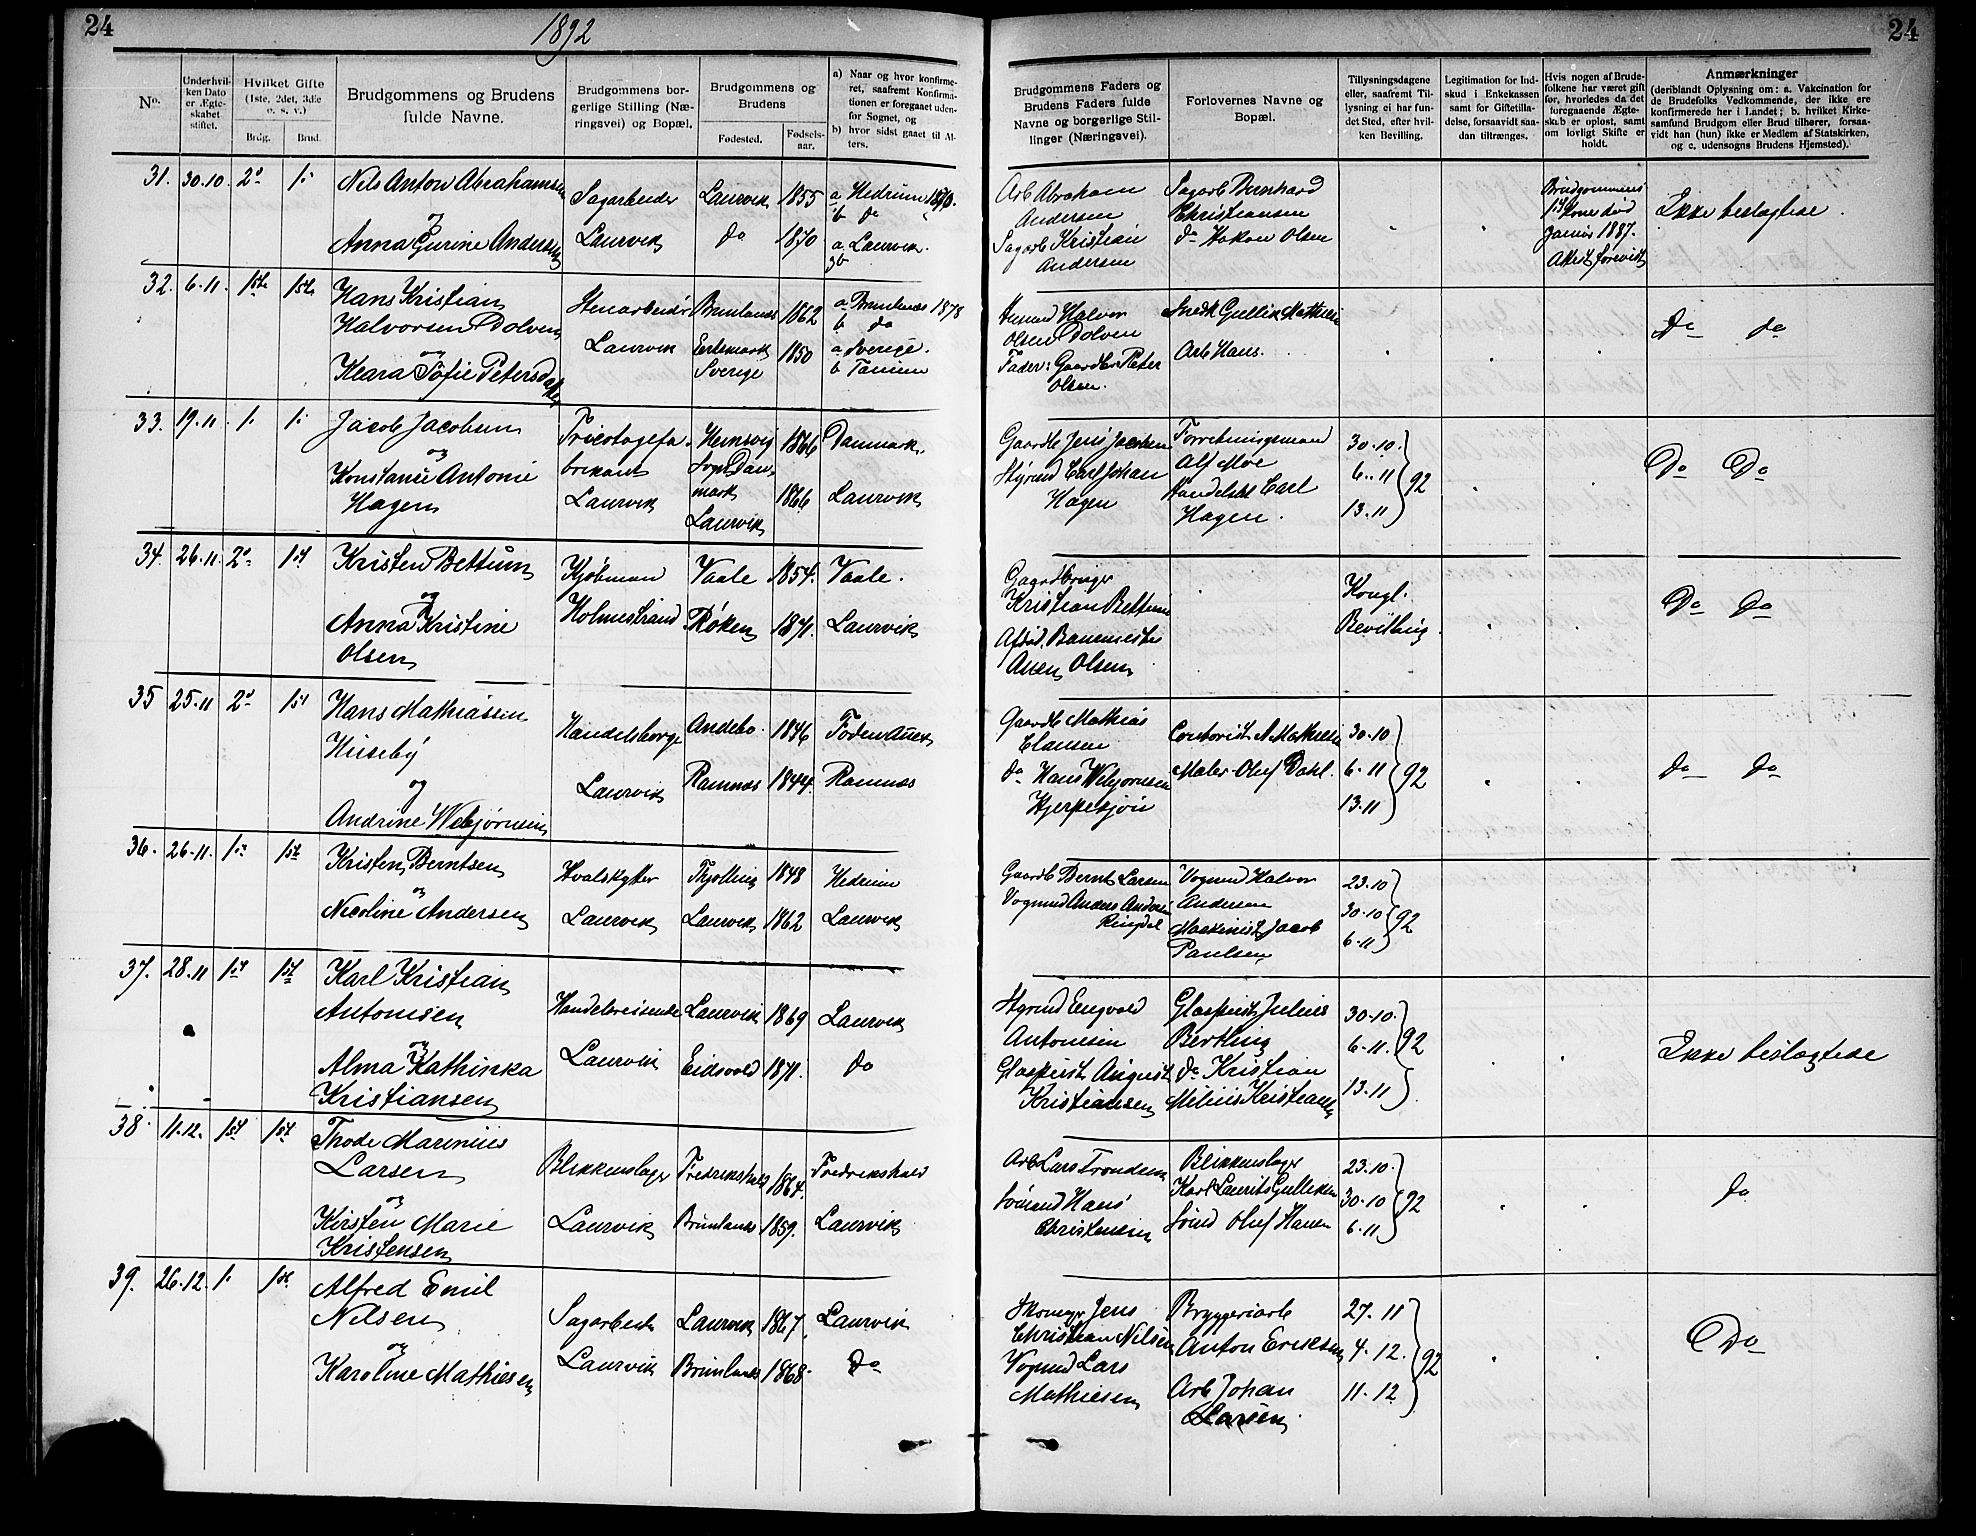 24
1892
24
No.
Underhvilken Dato er Ægteskabet stiftet.
Hvilket Gifte (1ste, 2det, 3die o. s. v.)
Brúg.
Brud.
Brudgommens og Brudens fulde Navne.
Brudgommens borgerlige Stilling (Næringsvei) og Bopæl.
Brudgommens og Brudens
Fødested.
Fødselsaar.
a) Naar og hvor konfirmeret, saafremt Konfirmationen er foregaaet udenfor Sognet, og
b) hvor sidst gaaet til Alters.
Brudgommens Faders og Brudens Faders fulde Navne og borgerlige Stillinger (Næringsvei).
Forlovernes Navne og Bopæl.
Tillysningsdagene eller, saafremt Tillysning ei har fundet Sted, efter hvilken Bevilling.
Legitimation for Indskud i Enkekassen samt for Giftetilladelse, forsaavidt saadan tiltrænges.
Hvis nogen af Brudefolkene har været gift før, hvorledes da det foregaaende Ægteskab er opløst, samt om lovligt Skifte er holdt.
Anmærkninger
(deriblandt Oplysning om: a. Vakcination for de Brudefolks Vedkommende, der ikke ere konfirmerede her i Landet; b. hvilket Kirkesamfund Brudgom eller Brud tilhører, forsaavidt han (hun) ikke er Medlem af Statskirken, og c. udensogns Brudens Hjemsted).
31. 30.10. 2 1. Nils Anton Abrahamsen Sagarbeider Laurvik 1855 a Hedrum 1870.
b do
og
Anna Gurine Andersen Laurvik do 1870 a Laurvik.
Arb Abraham Andersen Sagarb Bernhard Christiansen
Sagarb Kristian Andersen do Hakon Olsen
Brudgommens 1st Kone død Januar 1887. Attest forevist
Ikke beslægtede.
32. 6.11. 1ste 1ste Hans Kristian Halvorsen Dolven Stenarbeider Brunlanes 1862 a Brunlanes 1878
b do
og
Klara Sofie Petersdatter Laurvik Sverige 1850 a Sverige.
b
Halvor Olsen Dolven Snedk Gullik Mathisen
Fader: Gaardbr Peter Olsen. Arb Hans.
do do
33. 19.11. 1. 1. Jacob Jacobsen Tricotagefabrikant 1866 Danmark
og
Konstanse Antonie Hagen Laurvik Laurvik 1866 Laurvik
Gaardb Jens Jacobsen Forretningsmand Alf Moe 30.10.
Carl Johan Hagen Handelsb Carl Hagen. 6.11 92
13.11
Do Do
34. 26.11. 2 1st Kristen Bettum Kjøbmand Vaale 1854. Vaale.
og
Anna Kristine Olsen Holmestrand Røken 1871. Laurvik
Gaardbruger Kristian Bettum
Olsen
Kongl. Bevilling.
Do Do
35 25.11 2 1st Hans Mathiassen Huseby Handelsborger Andebo. 1846
og
Andrine Webjørnsen Laurvik Ramnæs 1844. Ramnæs
Gaardb Mathias Clausen Contorist N Mathisen 30.10
do Hans Webjørnsen Maler Oluf Dahl. 6.11 92
13.11
do do
36. 26.11. 1st 1st Kristen Berntsen Hvalskytter Thjølling 1848 Hedrum
og
Nicoline Andersen Laurvik Laurvik 1862 Laurvik
Gaardb Bernt Larsen Vognmd Halvor Andersen 23.10
Vognmd Anders Andersen Ringdal Maskinist Jacob Paulsen 30.10 92
6.11
37. 28.11 1st 1st Karl Kristian Antonisen Handelsreisende Laurvik 1869 Laurvik
og
Alma Kathinka Kristiansen Laurvik Eidsvold 1871. do
Styrmd Engvold Antonisen Glaspust Julius Bertling 30.10.
6.11. 92
Glaspust August Kristiansen do Kristian Milius Kristiansen 13.11
Ikke beslægtede
38. 11.12. 1st 1st Thode Marinius Larsen Blikkenslager Fredrikshald 1864. Fredrikshald
og
Kirsten Marie Kristensen Laurvik Brunlanes 1859. Laurvik
Arb Lars Trondsen Blikkenslager Karl Laurits Gulliksen 23.10.
Hans Christensen Oluf Hansen 30.10 92
6.11
do
39. 26.12. 1. 1st. Alfred Emil Nilsen Sagarbeider Laurvik 1867. Laurvik
og
Karoline Mathiesen Laurvik Brunlanes 1868. do
Skomagr Jens Christian Nilsen Bryggeriarb Anton Eriksen 27.11
4.12. 92
Vognmd Lars Mathiesen Arb Johan Larsen. 11.12
Do